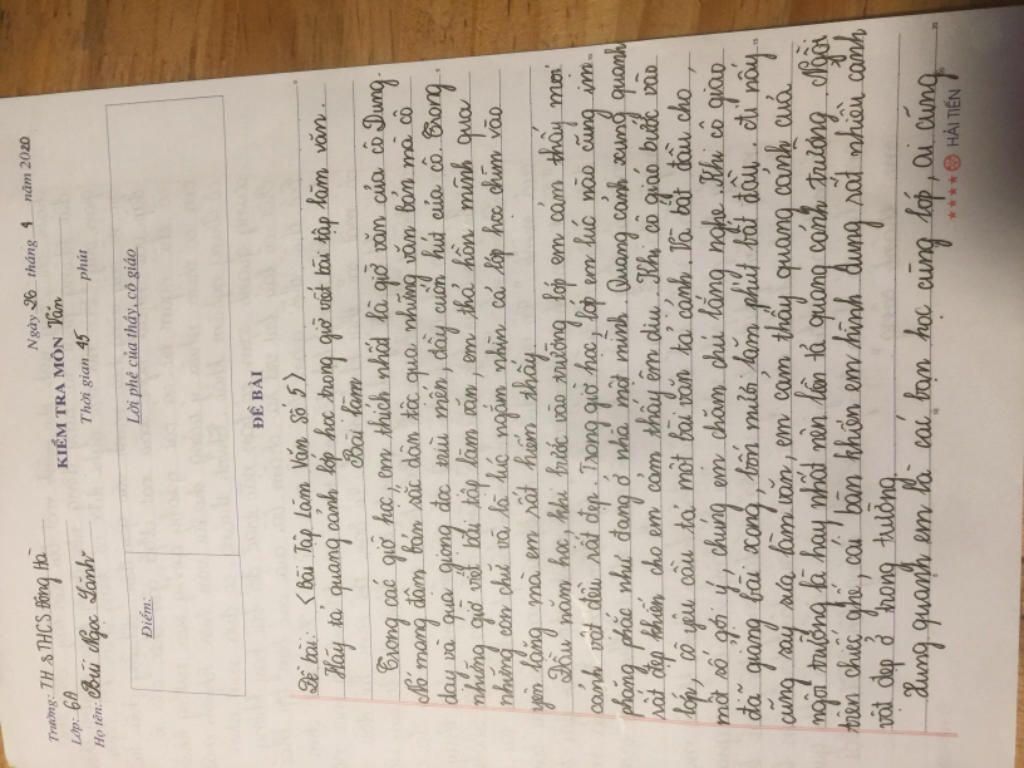 Trường: TH & THCS Đông Hà
Lớp: 6A
Họ tên: Bùi Ngọc Lành
Ngày 26 tháng 4 năm 2020
KIỂM TRA MÔN Văn
Thời gian 45 phút
Điểm:
Lời phê của thầy, cô giáo
ĐỀ BÀI
Đề bài: <Bài Tập Làm Văn Số 5>
Hãy tả quang cảnh lớp học trong giờ viết bài tập làm văn.
Bài làm
Trong các giờ học, em thích nhất là giờ văn của cô Dung.
Nó mang đậm bản sắc dân tộc qua những văn bản mà cô
dạy và qua giọng đọc truyền miến, đầy cuốn hút của cô. Trong
những giờ viết bài tập làm văn, em thả hồn mình qua
những con chữ và là lúc ngắm nhìn cả lớp học chìm vào
yên lặng mà em rất hiếm thấy.
Đầu năm học, khi bước vào xưởng lớp em cảm thấy mọi
cảnh vật đều rất đẹp. Trong giờ học, lớp em lúc nào cũng im
phăng phắc như đang ở nhà mở mình. Quang cảnh xung quanh
rất đẹp khiến cho em cảm thấy êm dịu. Khi cô giáo bước vào
lớp, cô yêu cầu tả một bài văn tả cảnh. Và bắt đầu cho
một số gợi ý, chúng em chăm chú lắng nghe. Khi cô giáo
đã giảng bài xong, bốn mươi lăm phút bắt đầu. đi nấy
cũng say sưa làm văn, em cảm thấy quang cảnh của
ngôi trường là hay nhất nên lên tả quang cảnh trường. Ngồi
trên chiếc ghế, cái bàn khiến em hình dung rất nhiều cảnh
vật đẹp ở trong trường
Xung quanh em là cái bạn học cùng lớp, ai cũng
★★★★ HẢI TIẾN